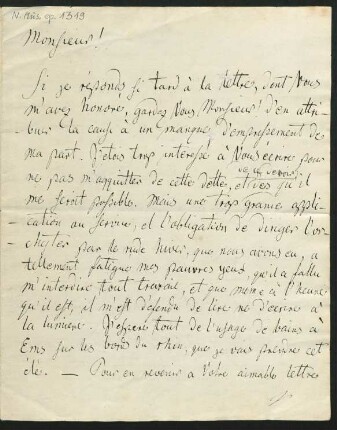 N. Mus. ep. 1319
Monsieur!
Si je réponds si tard à la lettre, dont Vous
m'avez honoré, gardez Vous, Monsieur! d'en attri-
buer la cause à un manque d'empressement de
ma part. J'etois trop interessé à Vous écrire pour
ne pas m'acquitter de cette dette, qu'il
me seroit possible. Mais une trop grande appli-
cation au service, et l'obligation de diriger l'or-
chestre par le rude hiver, que nous avons eu, a
tellement fatigué mes pauvres yeux, qu'il a fallu
m'interdire tout travail, et que même à l'heure
qu'il est, il m'est défendu de lire ne d'ecrire à
la lumiere. J'espère tout de l'usage de bains à
Ems sur les bords du Rhin, que je vais prendre cet
été. — Pour en revenir à Votre aimable lettre